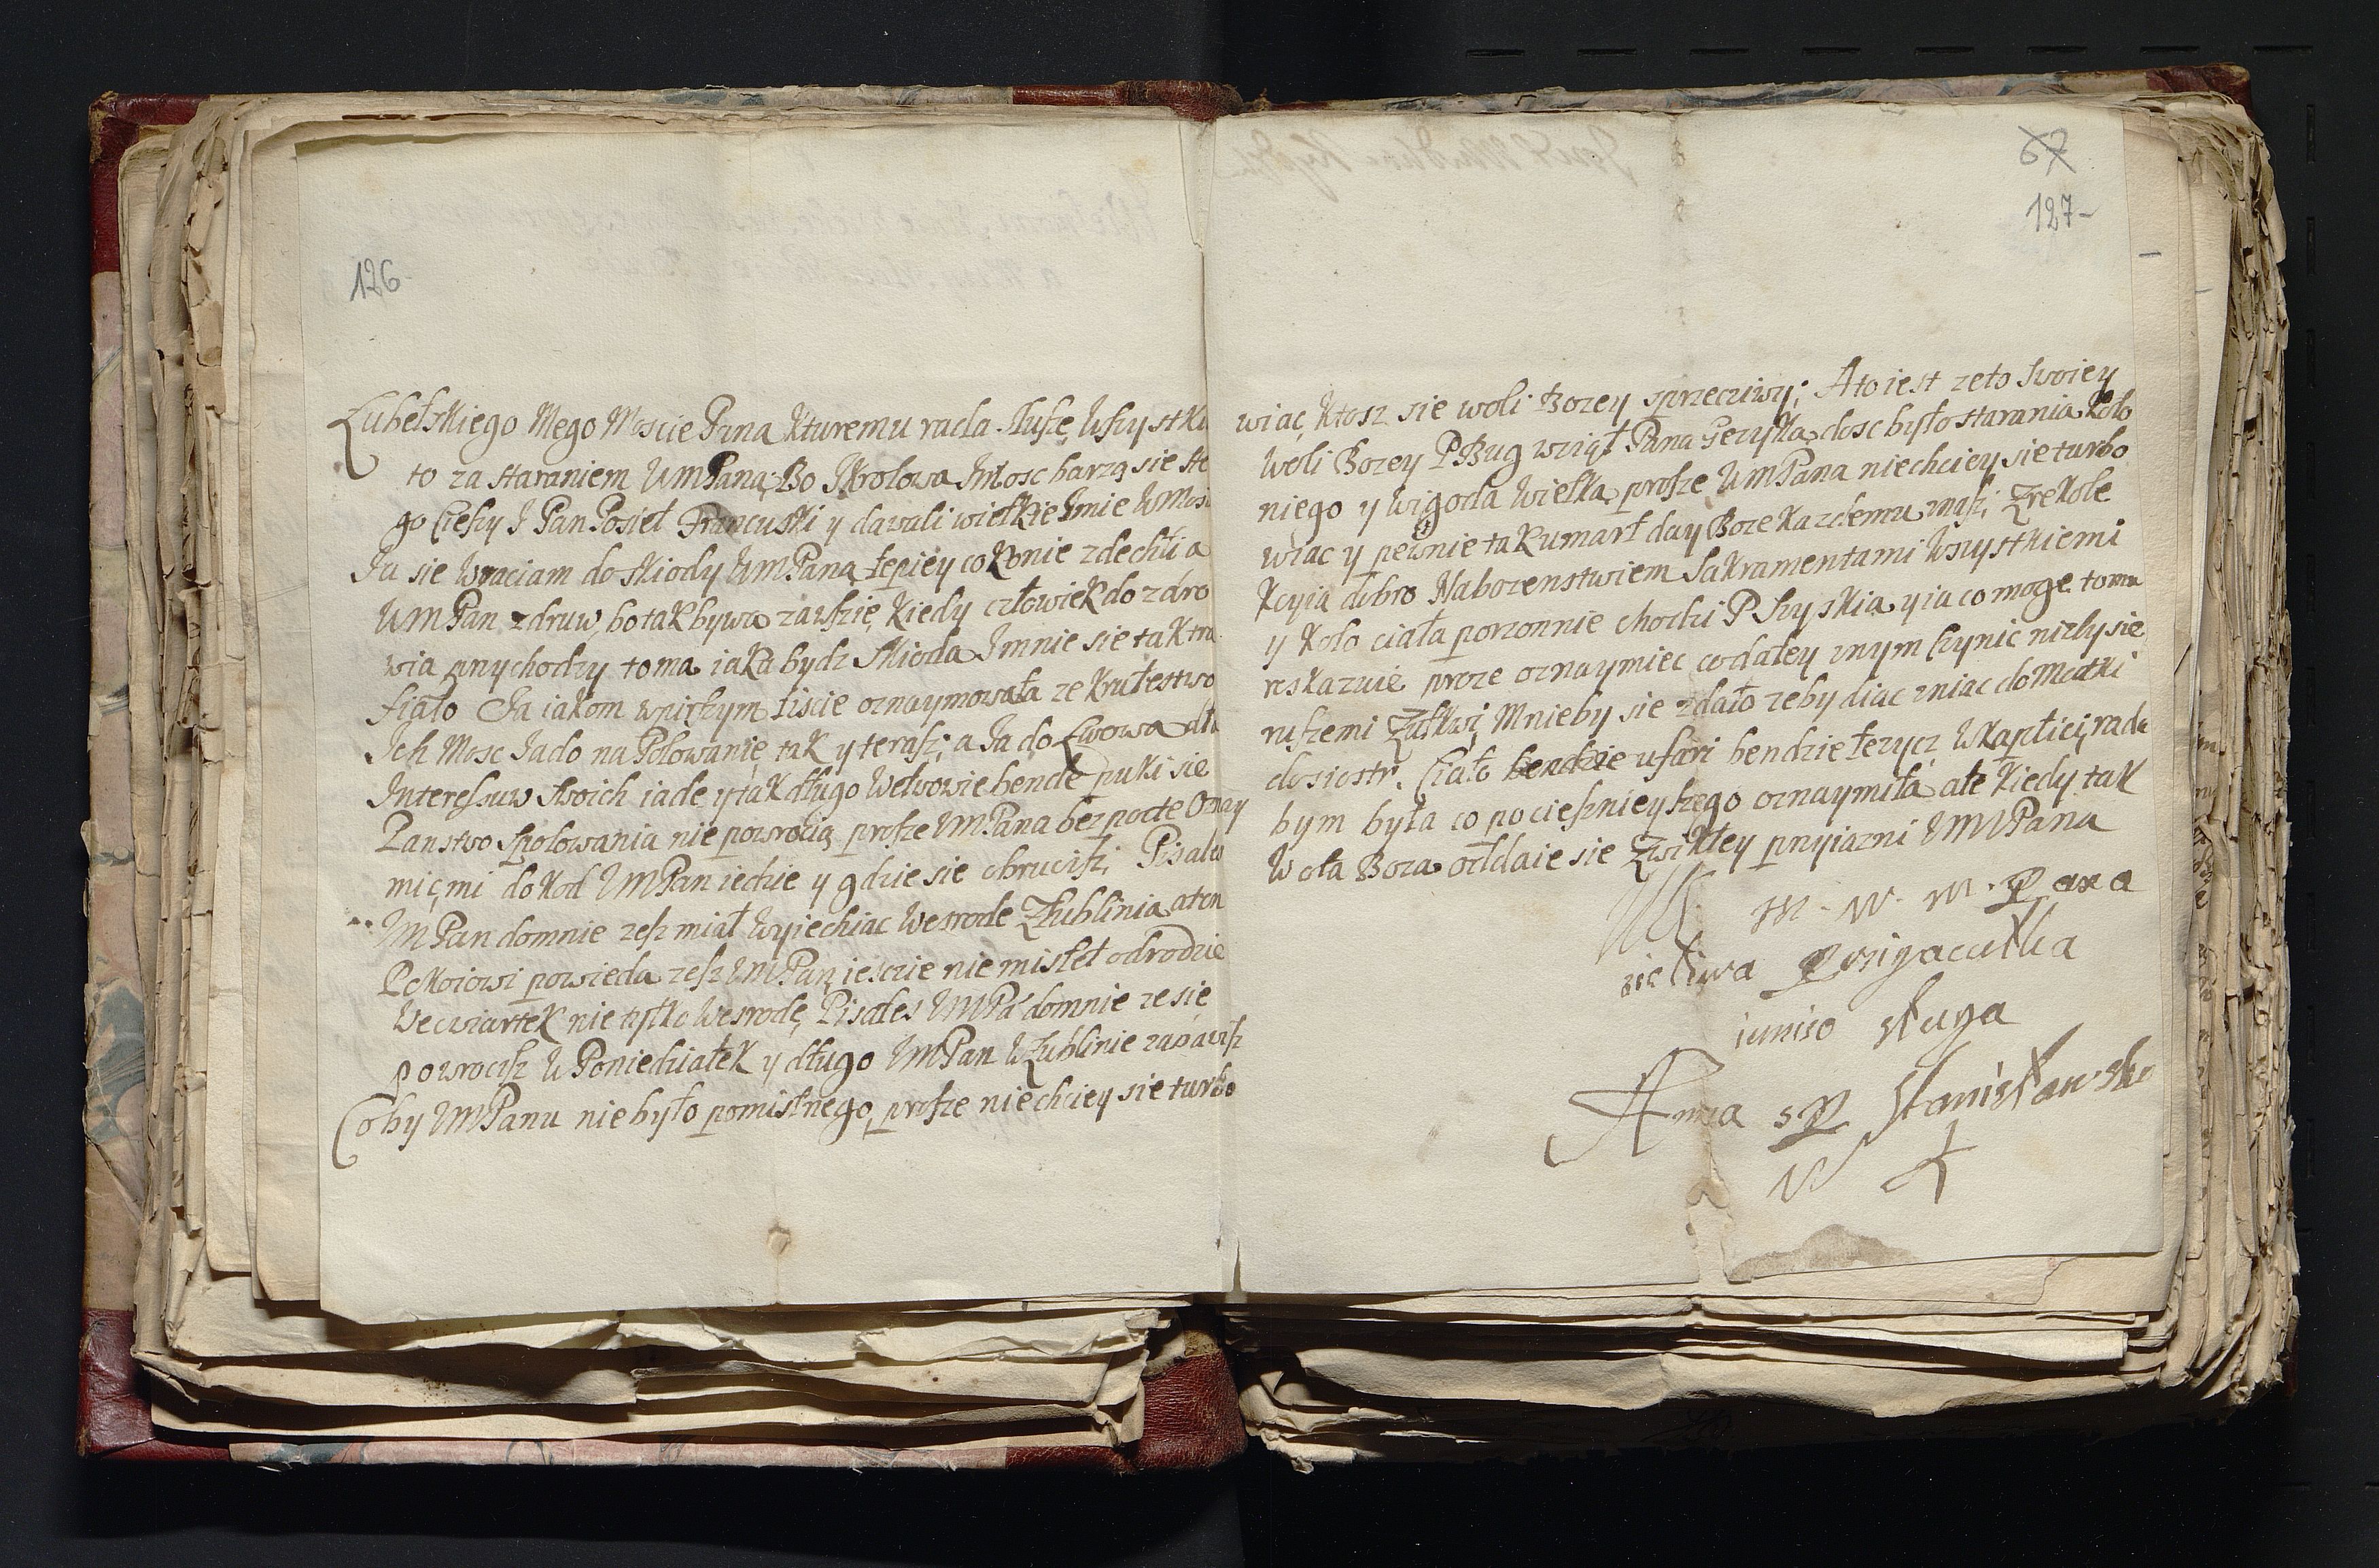 126
Lubelskiego Mego Moscie Pana Kturemu rada Służe, Wszystko
to za staraniem WmPana, Bo Krolowa Jmosc barzo sie ste
go Cieszy J Pan Poseł Francuski y dawali wielkie Jmie WMosi
Ja sie Wraciam do skiody WmPana, łepiey co Konie zdechli a
WmPan zdruw, bo tak bywa zawszie, Kiedy człowiek do zdro
wia pnychodzy to ma iaka bydz skioda J mnie sie tak tra
fiało Ja iakom wpirszym Liscie oznaymowała ze Krulestwo
Ich Mosc Jado na Polowanie, tak y teraz, a Ja do Lwowa dla
Interessuw swoich iade, y tak długo Welwowie bende puki sie
Panstwo spolowania nie powrocią, prosze WmPana bez pocte Oznay
mic, mi dokod WmPan iedzie y gdzie sie obrucisz, Pisałes
WmPan domnie zesz miał wyiechiac Wesrode ZLublinia, a ten
Pokoiowi powieda zesz WmPan, ieszcie nie mislel odrodzie
Wecwiartek nie tylko Wesrode, Pisałes WmPa domnie ze sie
powrocisz W Poniedziałek y długo WmPan WLublinie zabawisz
Coby WmPanu nie było pomislnego, prosze niechciey sie turbo
67
127
wiac, Ktosz sie woli Bozey sprzeciwy; A to iest zeto swoiey
Woli Bozey PBug wziął Pana Gezyka, dosc było starania Koło
niego y wigoda wielka, prosze WmPana niechciey sie turbo
wiac y pewnie tak umarł day Boze Kazdemu nasz, Zrekole
kcyią dobro Nabozenstwiem Sakramentami Wszystkiemi
y Koło ciała porzonnie chodzi P Szyskia, y ia co moge tomu
roskazuie prosze oznaymiec co daley znym Czynic nizly sie
ruszemi Zułkwi, Mnieby sie zdało zeby diac zniac do Matki
do siostr. Ciało bendzie ufari bendzie lezycz WKaplici, rada
bym była co pociesznieyszego oznaymiła ale Kiedy tak
Wola Boza oddaie sie Zwikley przyiazni WMPana
M. W. M. Pana
Anna Stanisławska